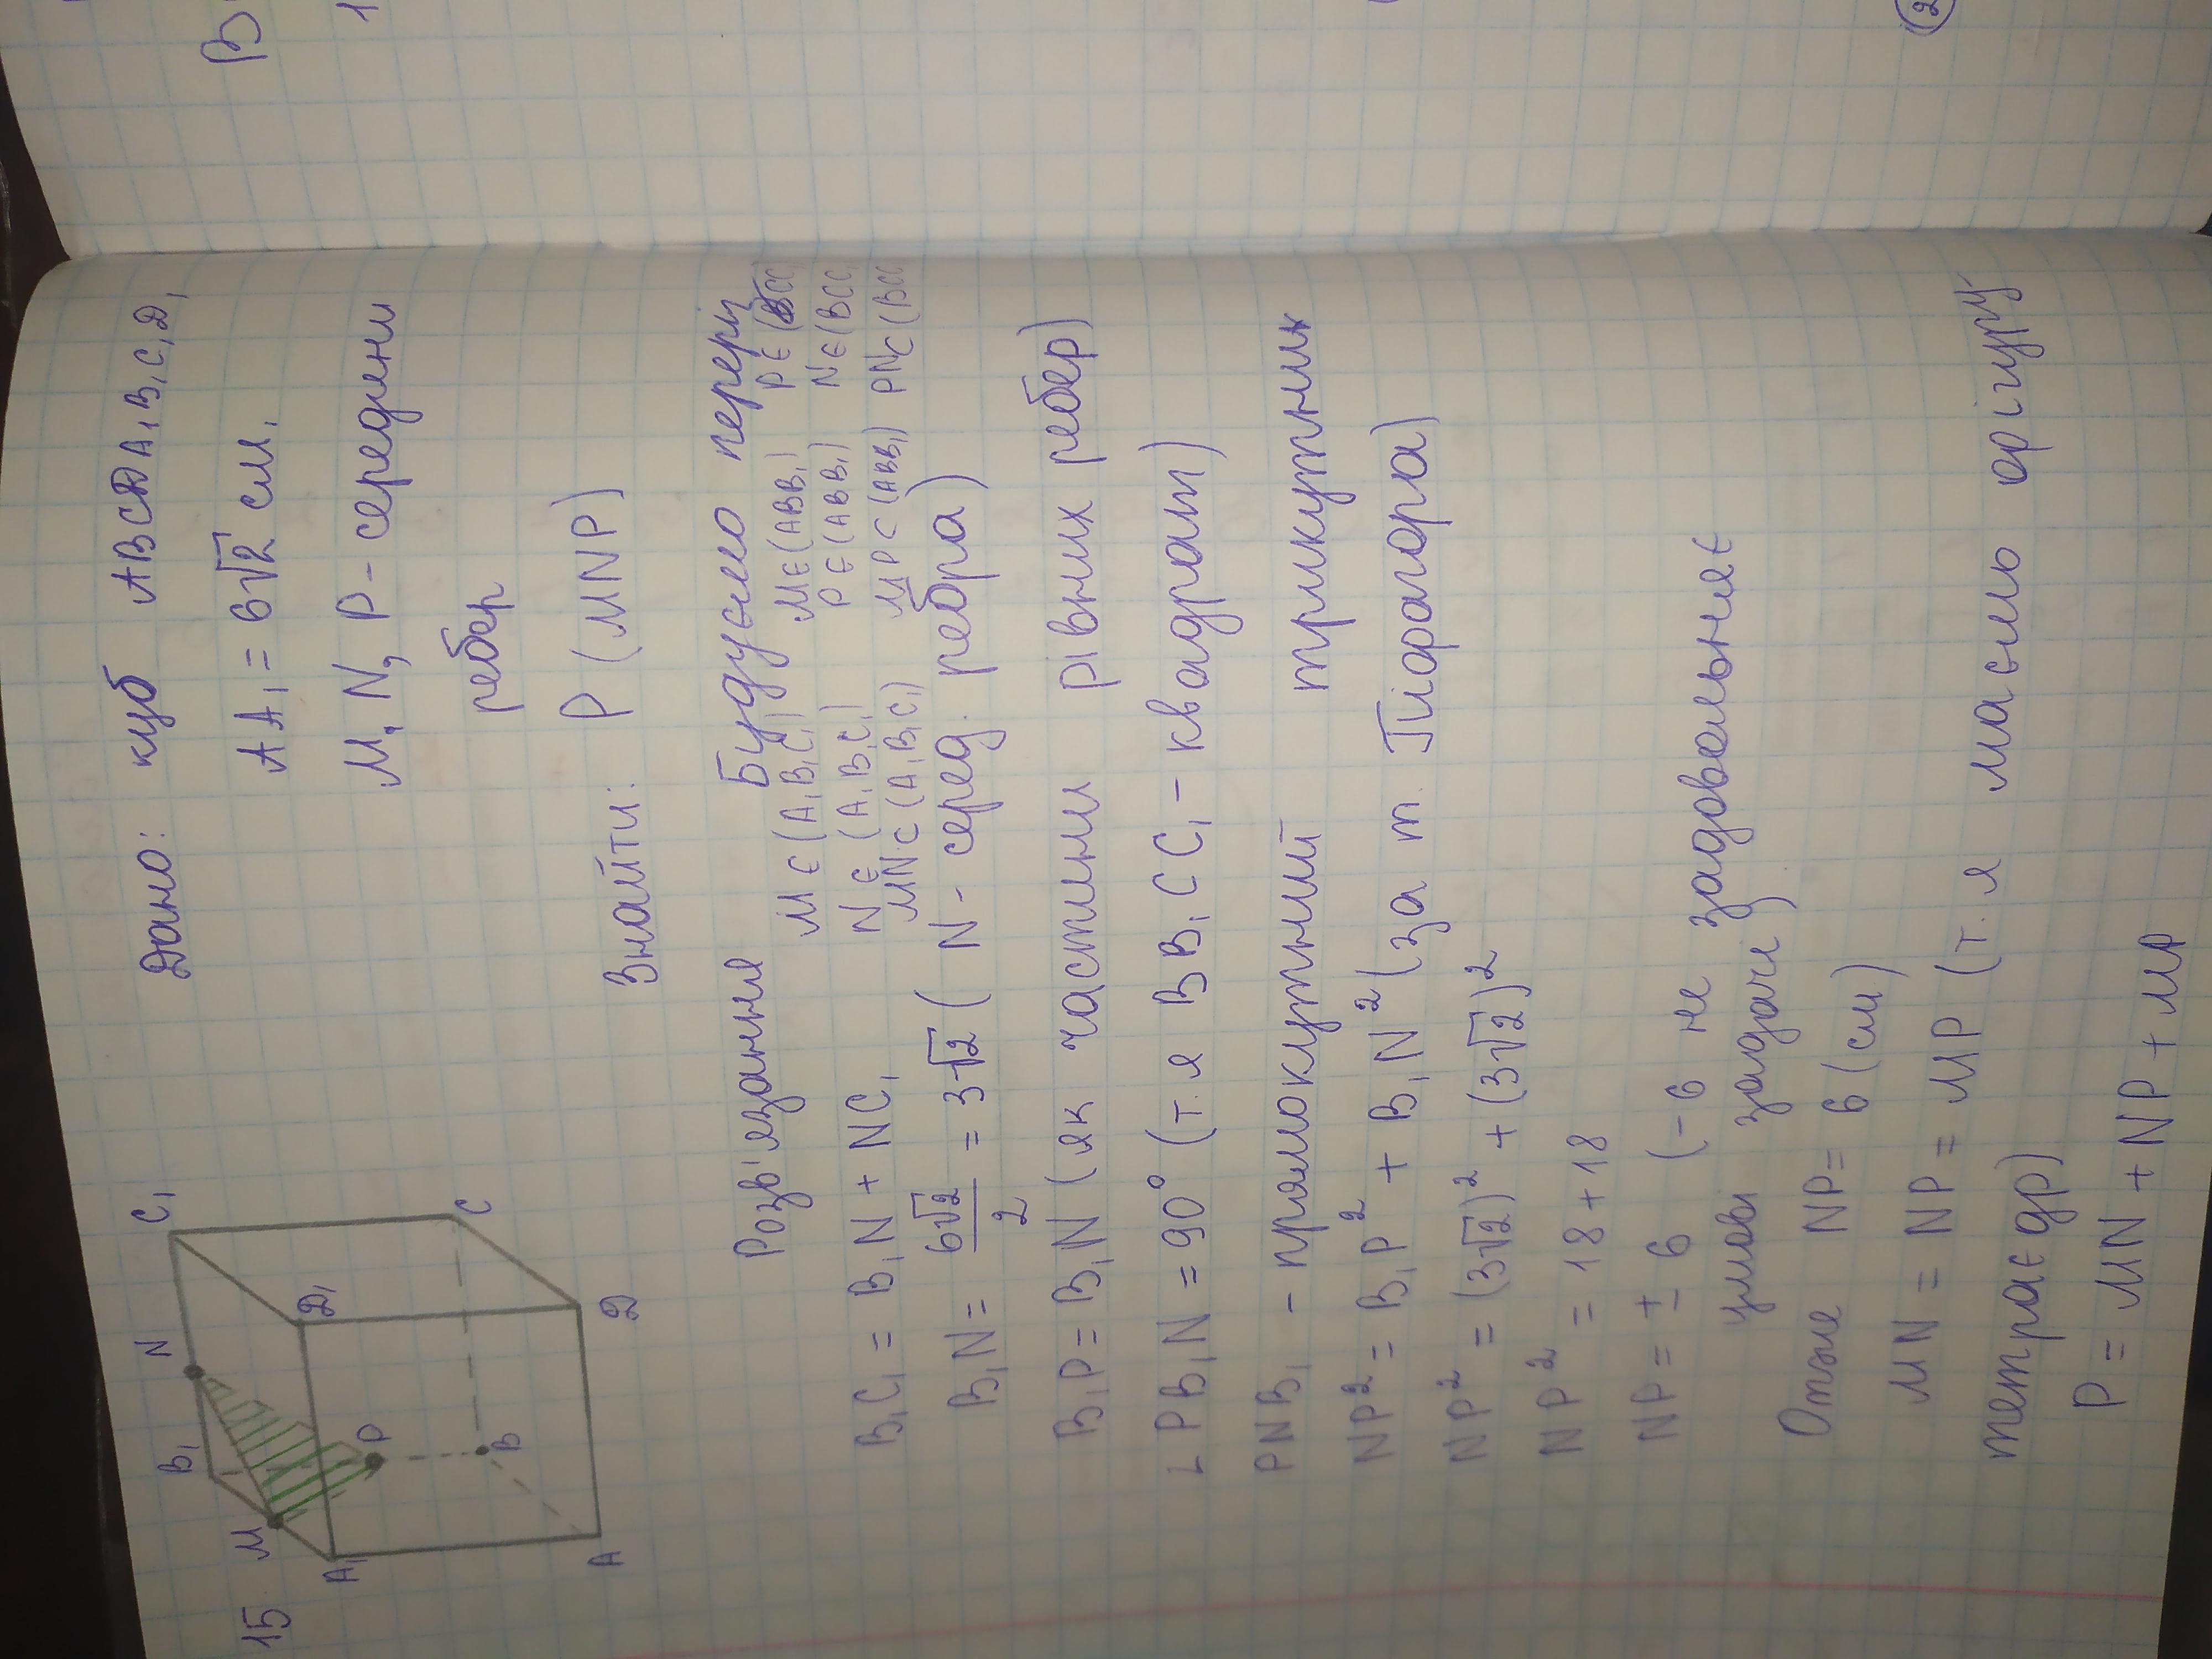 15
Дано: куб ABCDA₁B₁C₁D₁
AA₁ = 6√2 см.
M, N, P - середини
ребер
Знайти: P (MNP)
B₁
N
C₁
M
A₁
D₁
P
B
C
A
D
Розв'язання Будуємо
M ∈ (A₁B₁C₁) M ∈ (ABB₁) P ∈ (BCC₁
N ∈ (A₁B₁C₁) P ∈ (ABB₁) N ∈ (BCC₁
MN ⊂ (A₁B₁C₁) MP ⊂ (ABB₁) PN ⊂ (BCC
B₁C₁ = B₁N + NC₁
B₁N = 6√2/2 = 3√2 (N - серед. ребра)
B₁P = B₁N (як частини рівних ребер)
∟PB₁N = 90° (т. я BB₁CC₁ - квадрат)
PNB₁ - прямокутний трикутник
NP² = B₁P² + B₁N² (за т. Піфагора)
NP² = (3√2)² + (3√2)²
NP² = 18 + 18
NP = ± 6 (- 6 не задовольняє
умови задачі)
Отже NP = 6 (см)
MN = NP = MP (т. я маємо фігуру
тетраєдр)
P = MN + NP + MP
В
1
2